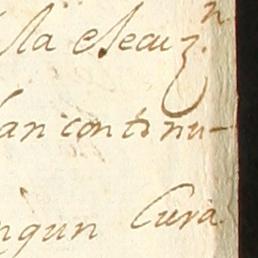 la execuz.n
an continu-
ngun Cura